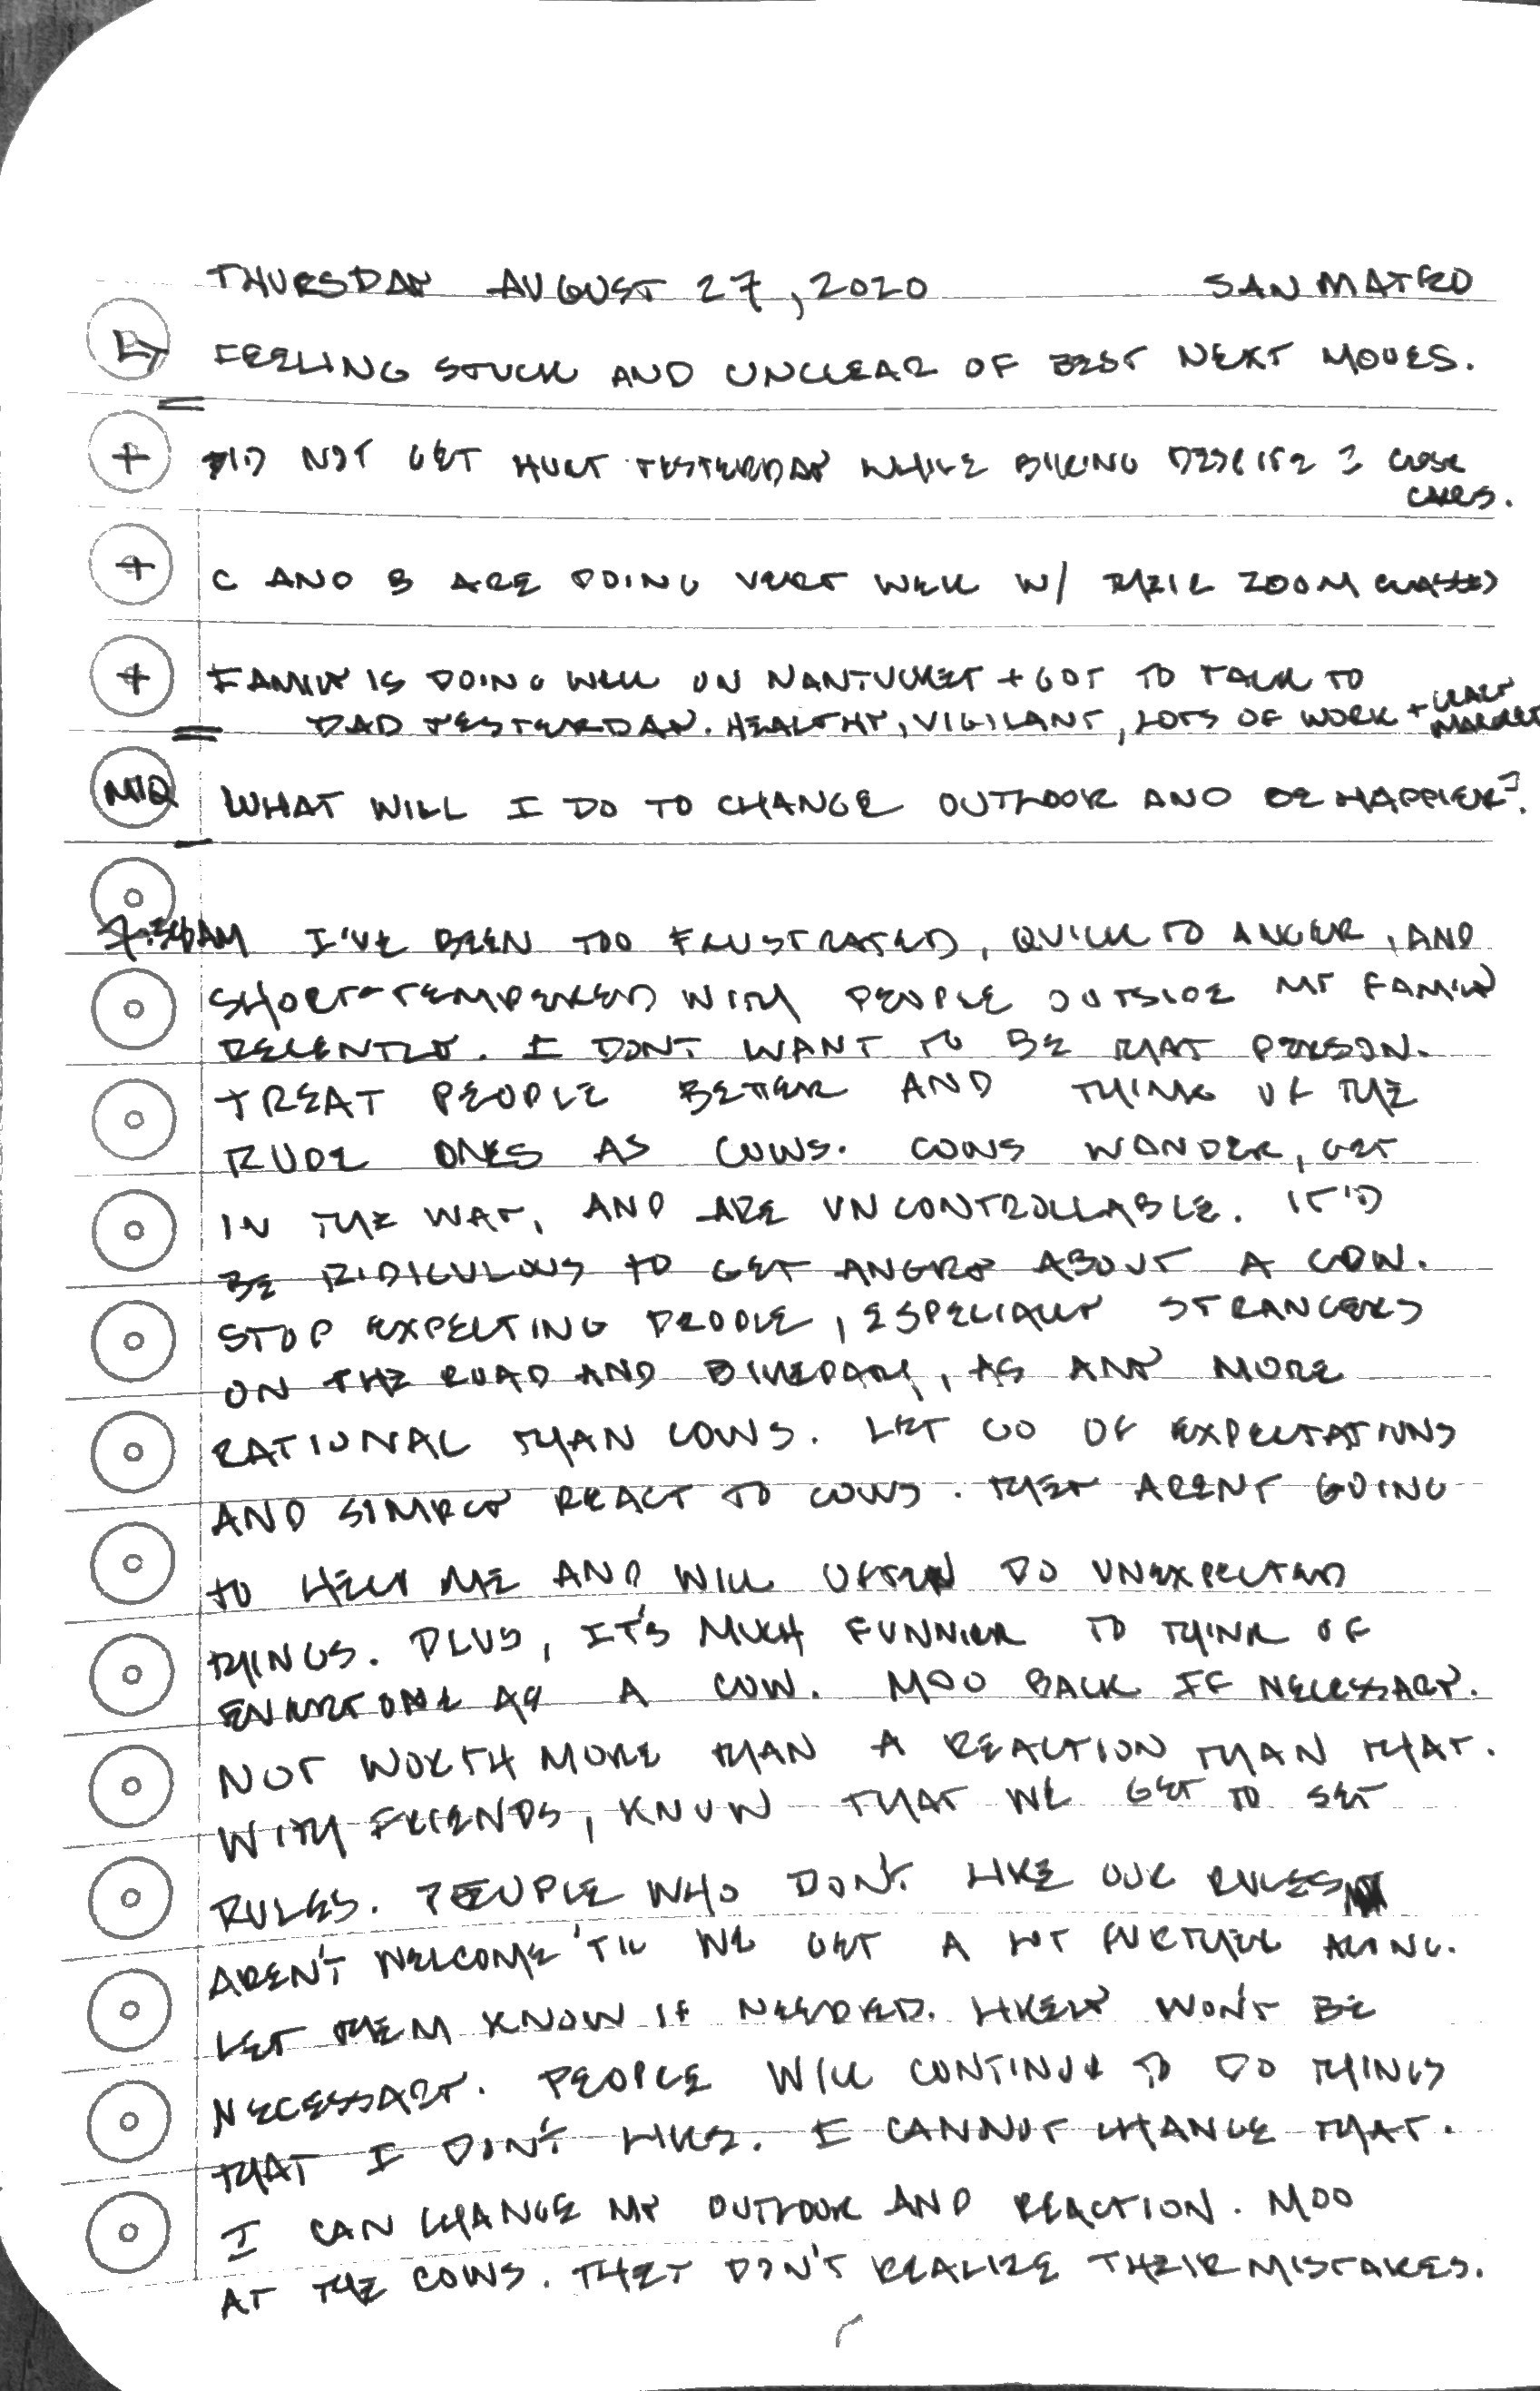 THURSDAY AUGUST 27, 2020 SAN MATEO
FEELING STUCK AND UNCLEAR OF BEST NEXT MOVES.
+ DID NOT GET HURT YESTERDAY WHILE BIKING DESPITE 2 CLOSE
CARS.
+ C AND B ARE DOING VERY WELL W/ THEIR ZOOM CLASSES
+ FAMILY IS DOING WELL ON NANTUCKET + GOT TO TALK TO
DAD YESTERDAY. HEALTHY, VIGILANT, LOTS OF WORK + CRAZY
MARKET
MIQ WHAT WILL I DO TO CHANGE OUTLOOK AND BE HAPPIER?
AM I'VE BEEN TOO FRUSTRATED, QUICK TO ANGER, AND
SHORT-TEMPERED WITH PEOPLE OUTSIDE MY FAMILY
RECENTLY. I DONT WANT TO BE THAT PERSON.
TREAT PEOPLE BETTER AND THINK OF THE
RUDE ONES AS COWS. COWS WANDER, GET
IN THE WAY, AND ARE UNCONTROLLABLE. IT'D
BE RIDICULOUS TO GET ANGRY ABOUT A COW.
STOP EXPECTING PEOPLE, ESPECIALLY STRANGERS
ON THE ROAD AND BIKEPATH, AS ANY MORE
RATIONAL THAN COWS. LET GO OF EXPECTATIONS
AND SIMPLY REACT TO COWS. THEY ARENT GOING
TO HELP ME AND WILL OFTEN DO UNEXPECTED
THINGS. PLUS, IT'S MUCH FUNNIER TO THINK OF
EVERYONE AS A COW. MOO BACK IF NECESSARY.
NOT WORTH MORE THAN A REACTION THAN THAT.
WITH FRIENDS, KNOW THAT WE GET TO SET
RULES. PEOPLE WHO DON'T LIKE OUR RULES
AREN'T WELCOME 'TIL WE GET A LOT FURTHER ALONG.
LET THEM KNOW IF NEEDED. LIKELY WON'T BE
NECESSARY. PEOPLE WILL CONTINUE TO DO THINGS
THAT I DON'T LIKE. I CANNOT CHANGE THAT.
I CAN CHANGE MY OUTLOOK AND REACTION. MOO
AT THE COWS. THEY DON'T REALIZE THEIR MISTAKES.